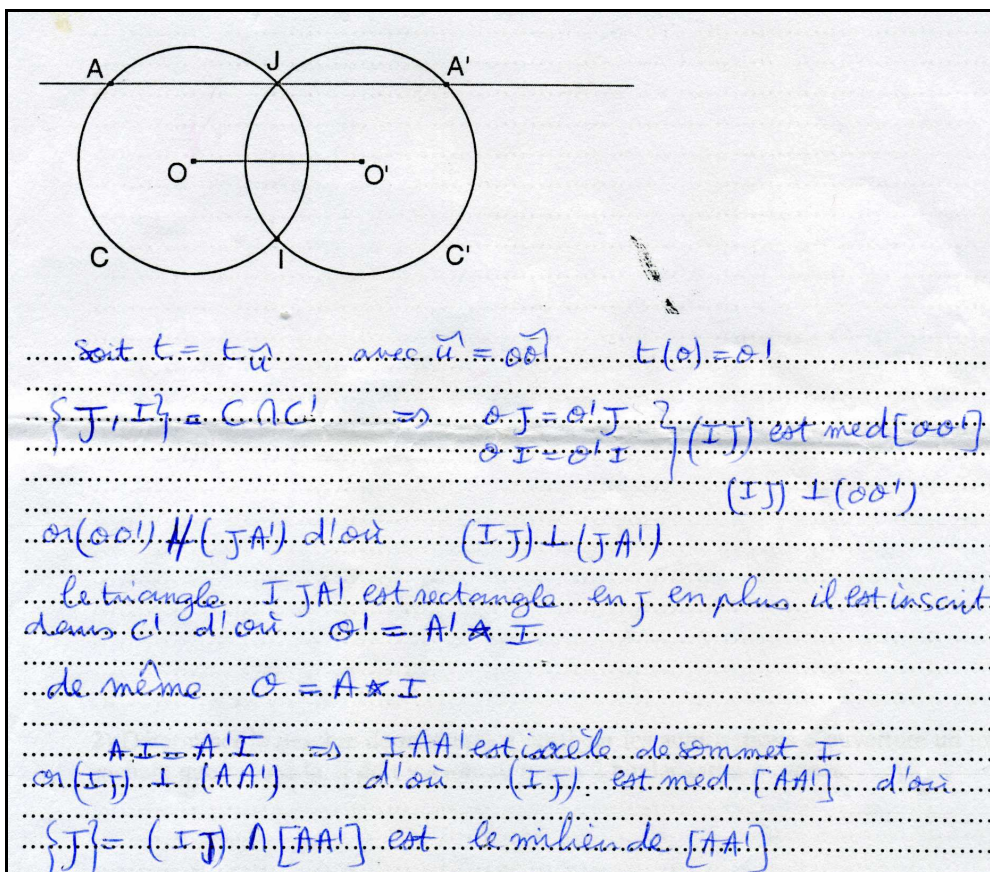 A J A'
O O'
C I C'
soit t = t_u⃗ avec u⃗ = OO'⃗ t(O) = O'
{J, I} = C ∩ C' ⇒ OJ = O'J } (IJ) est med [OO']
OI = O'I
(IJ) ⊥ (OO')
or (OO') // (JA') d'où (IJ) ⊥ (JA')
le triangle IJA' est rectangle en J en plus il est inscrit
dans C' d'où O' = A' * I
de même O = A * I
AI = A'I ⇒ IAA' est isocèle de sommet I
or (IJ) ⊥ (AA') d'où (IJ) est med [AA'] d'où
{J} = (IJ) ∩ [AA'] est le milieu de [AA']